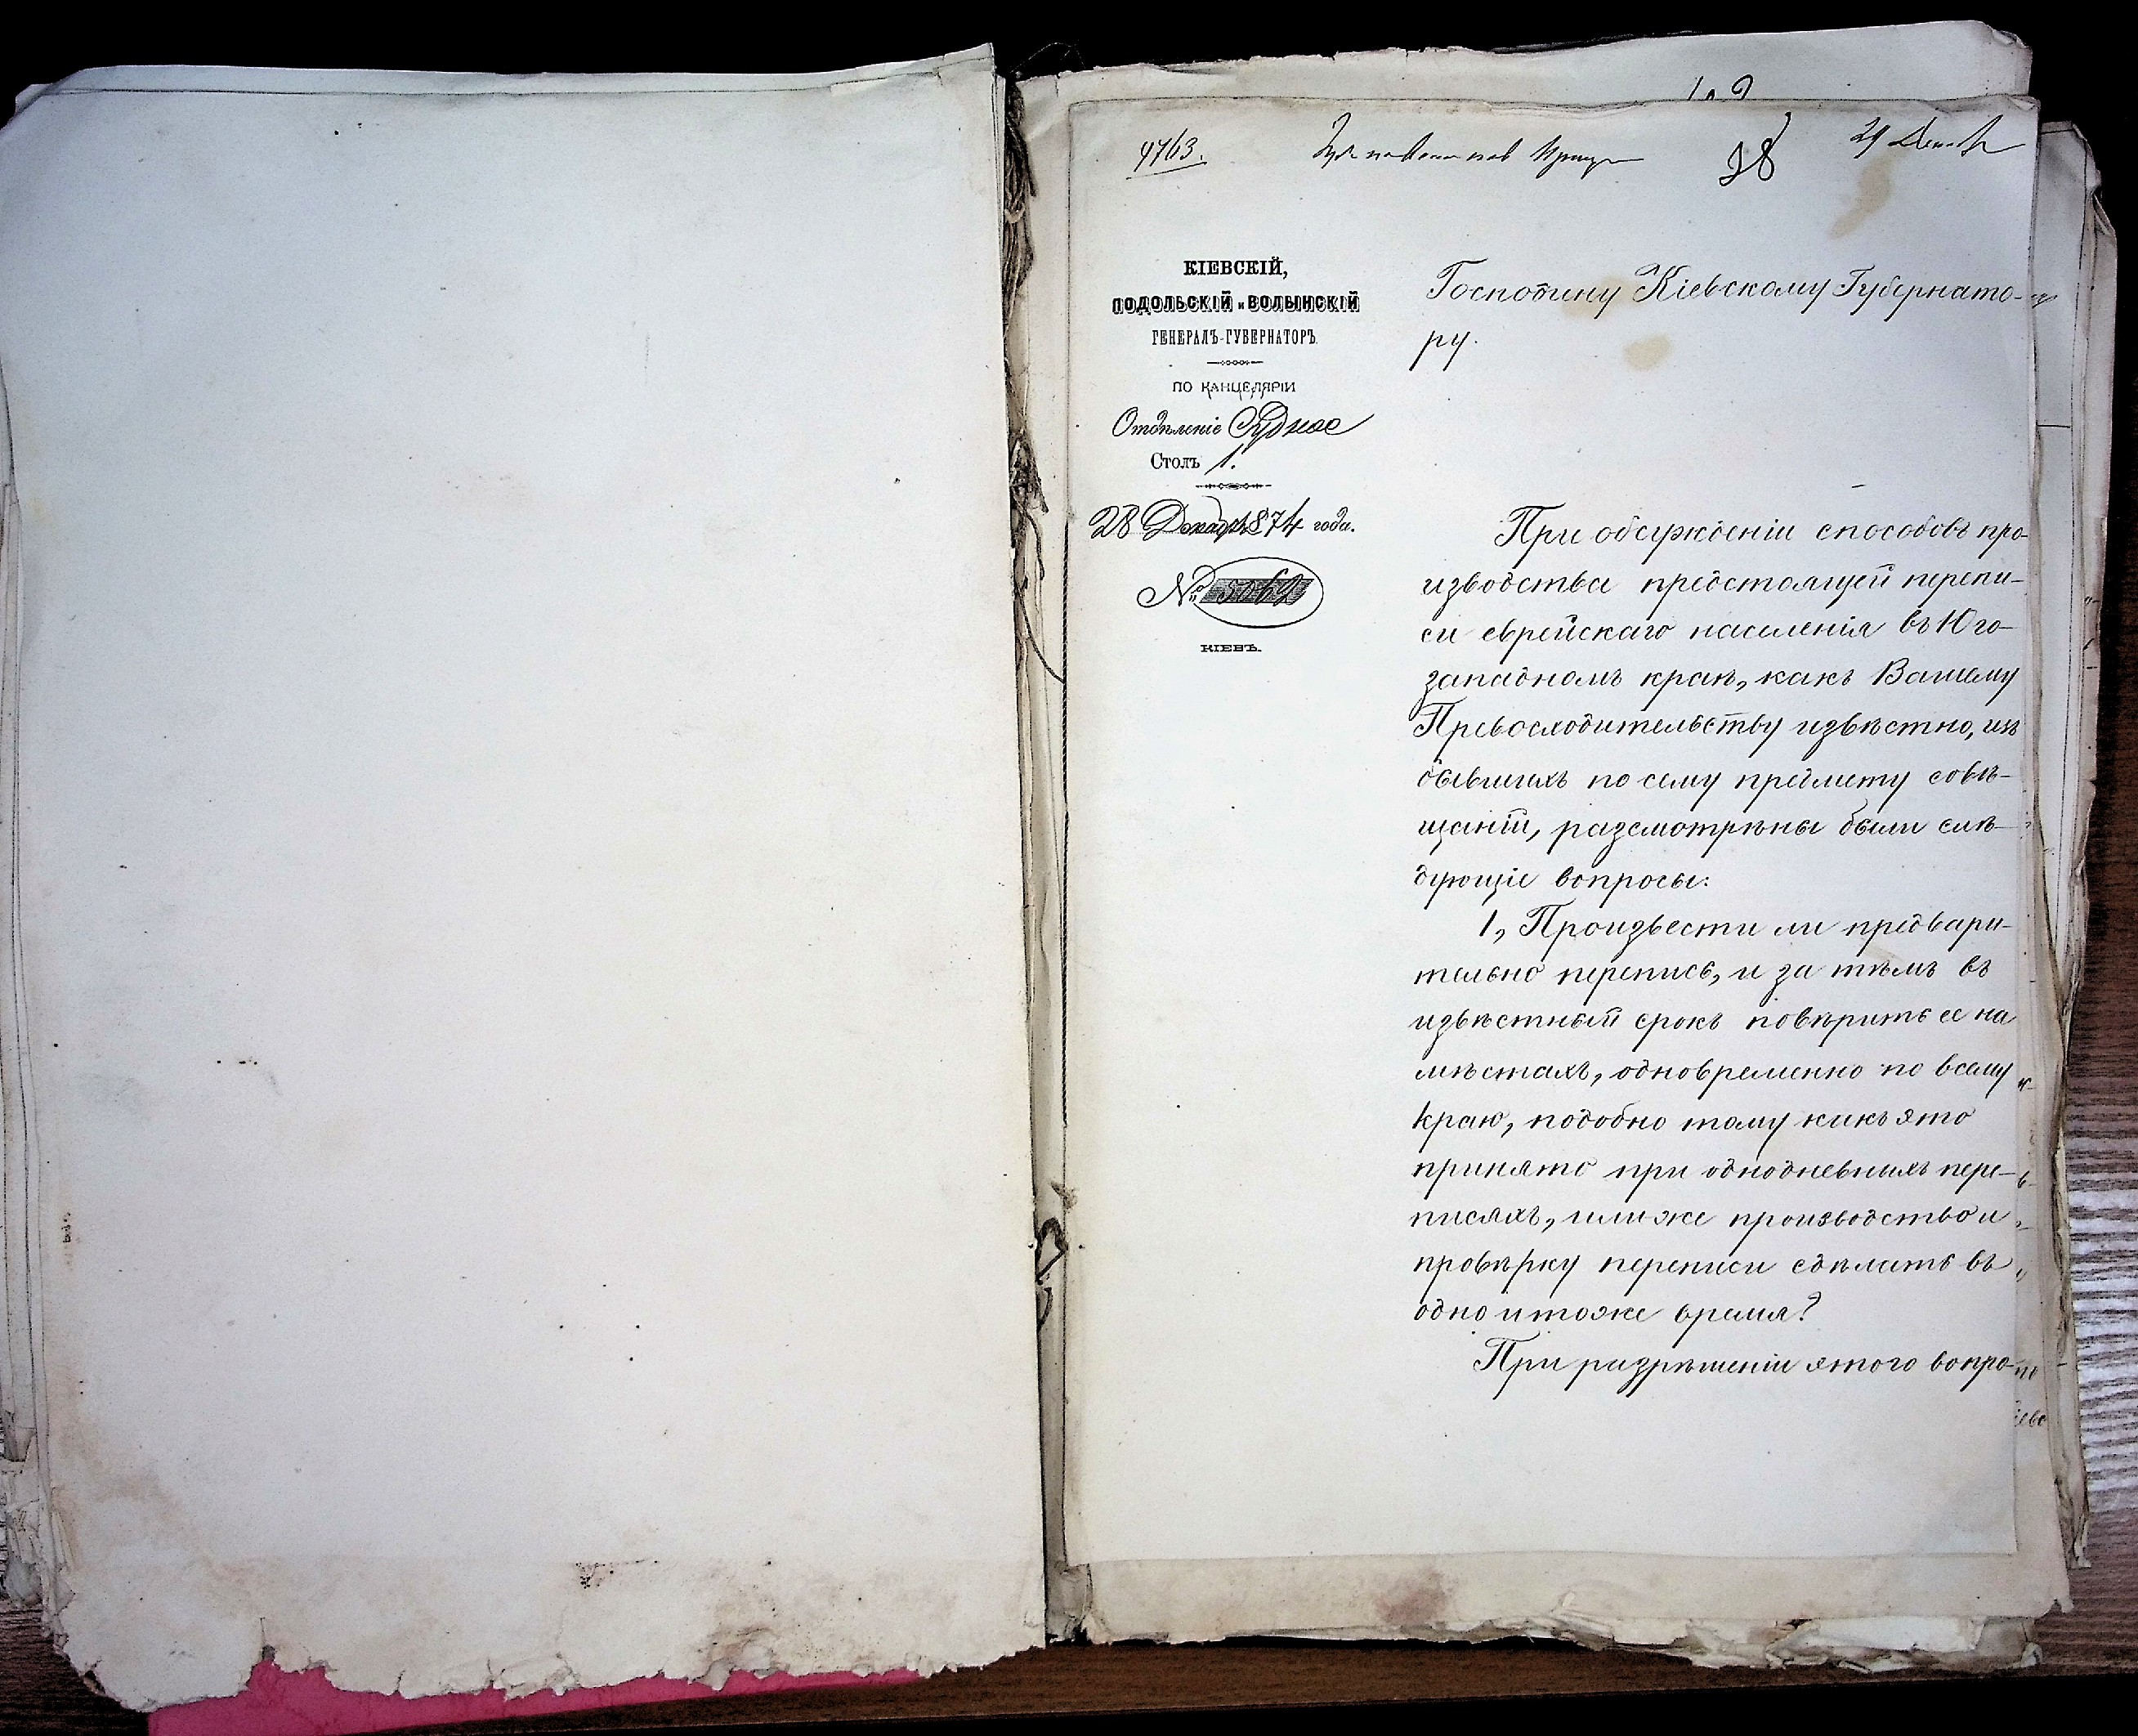 4763.
28
29 Декабр
КІЕВСКІЙ,
ПОДОЛЬСКІЙ и ВОЛЫНСКІЙ
ГЕНЕРАЛЪ-ГУБЕРНАТОРЪ.
ПО КАНЦЕЛЯРІИ
Отдѣленіе Судное
Столъ 1.
28 Декабр 1874 года.
№ 5062
КІЕВЪ.
Господину Кіевскому Губернато-
ру.
При обсужденіи способовъ про-
изводства предстоящей перепи-
си еврейскаго населенія въ Юго-
западномъ краѣ, какъ Вашему
Превосходительству извѣстно, изъ
бывшихъ по сему предмету совѣ-
щаній, разсмотрѣны были слѣ-
дующіе вопросы:
1, Произвести ли предвари-
тельно перепись, и за тѣмъ въ
извѣстный срокъ повѣрить ее на
мѣстахъ, одновременно по всему
краю, подобно тому какъ это
принято при однодневныхъ пере-
писяхъ, или же производство и
провѣрку переписи сдѣлать въ
одно и тоже время?
При разрѣшеніи этого вопро-